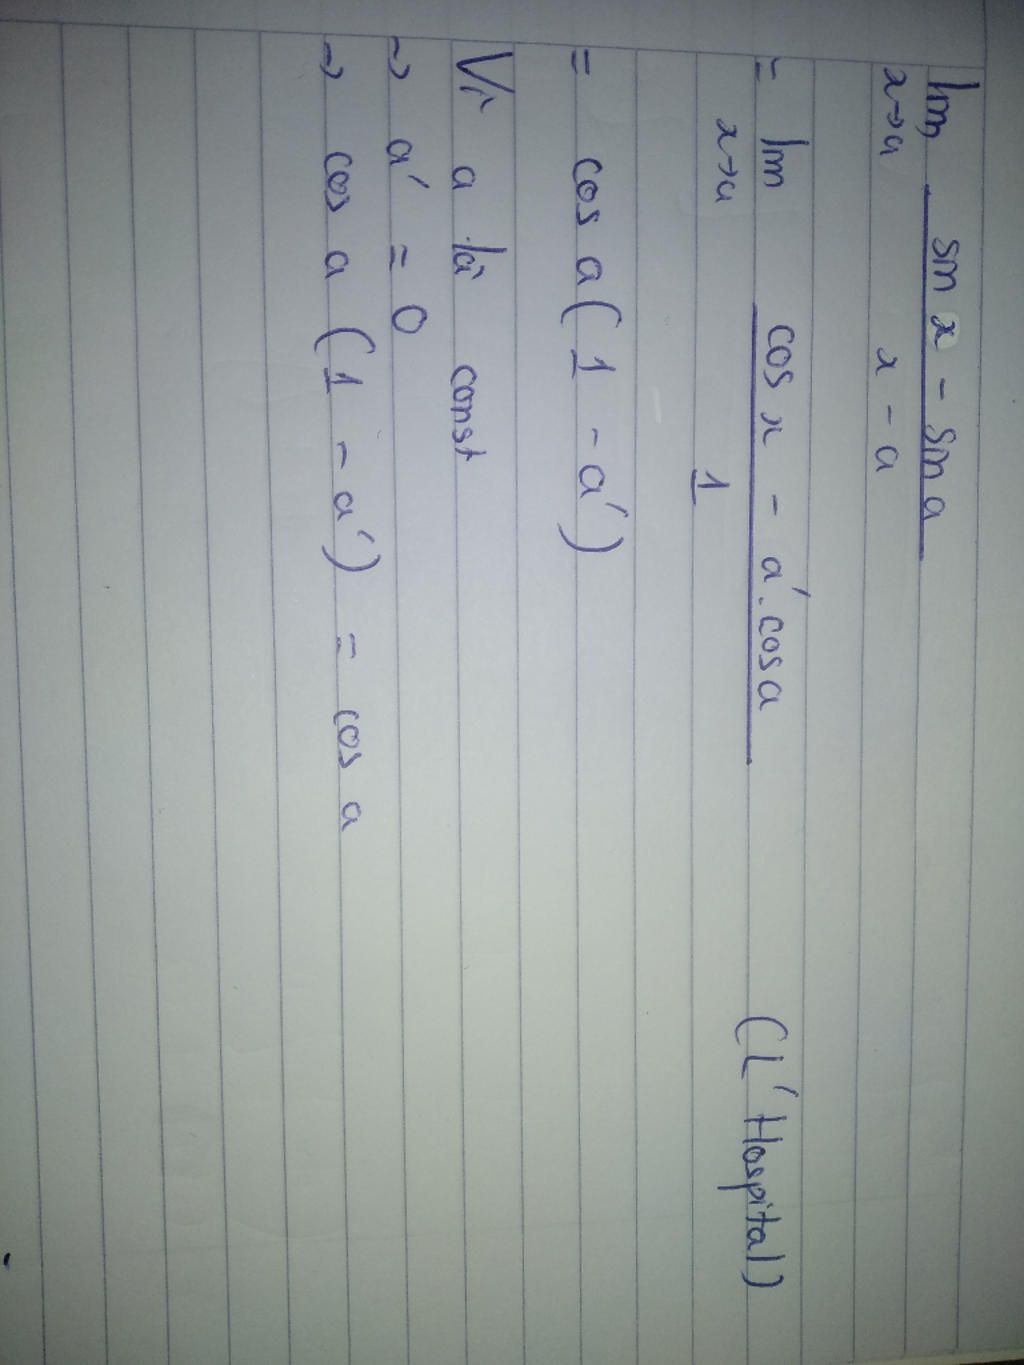 lim sin x - sin a
x→a x - a
= lim cos x - a'.cos a (L'Hospital)
x→a 1
= cos a (1 - a')
Vì a là const
→ a' = 0
→ cos a (1 - a') = cos a